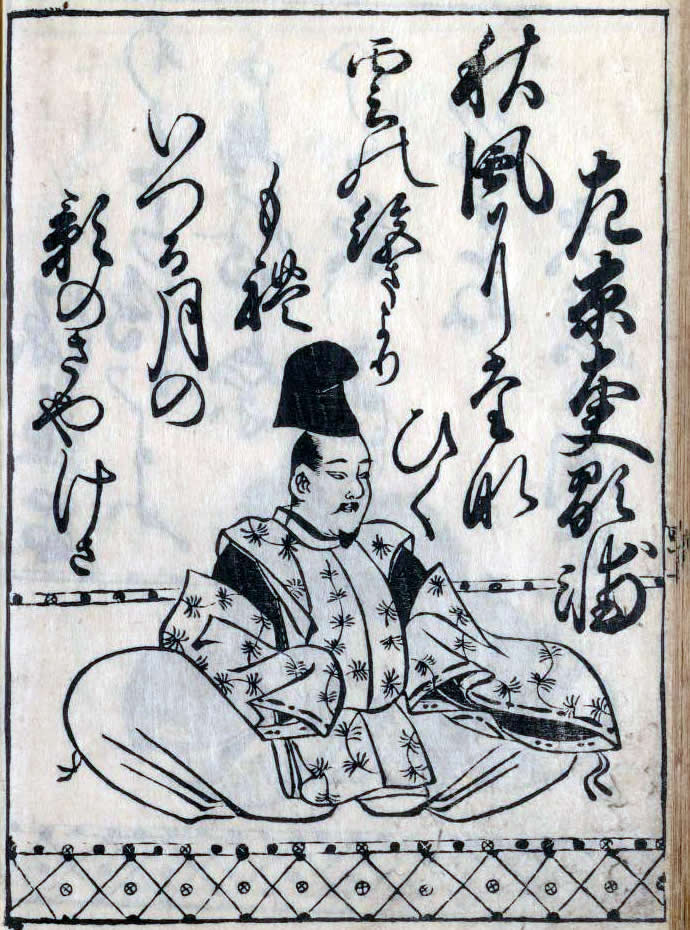 左京大夫顕輔
秋風に堂那
ひく
雲の絶まより
も禮
いつる月の
影のさやけさ